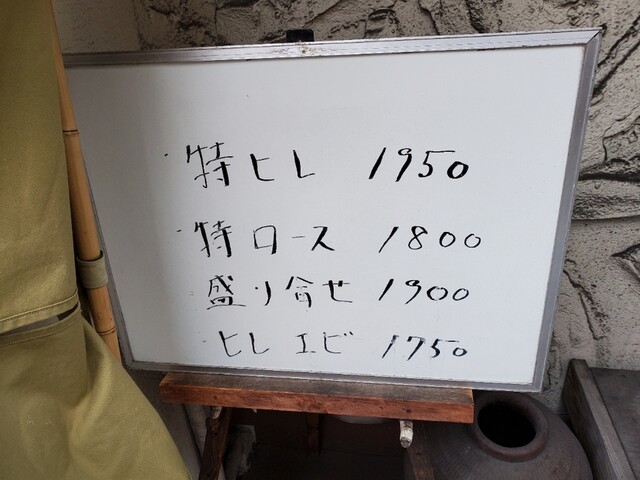 ・特ヒレ 1950
・特ロース 1800
盛り合せ 1900
ヒレ エビ 1750